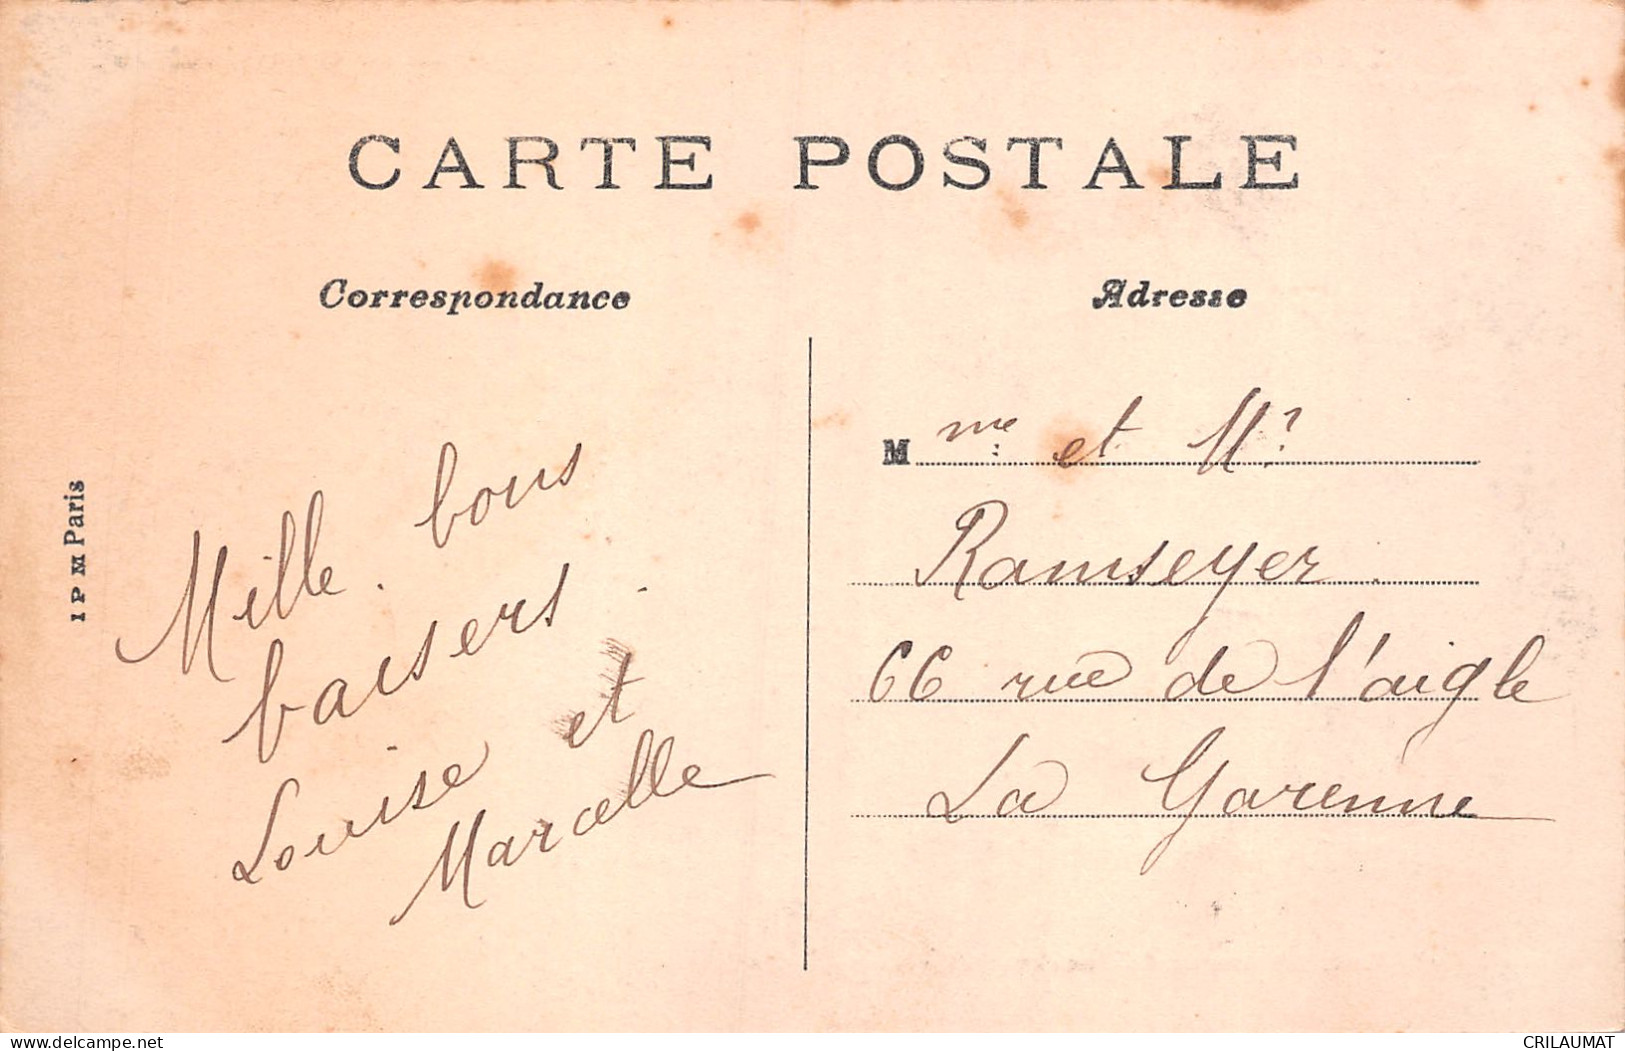 CARTE POSTALE
Correspondance
Adresse
I P M Paris
Mille bons
baisers.
Louise et
Marcelle
M me et Mr
Ramseyer
66 rue de l'aigle
La Garenne
www.delcampe.net
CRILAUMAT